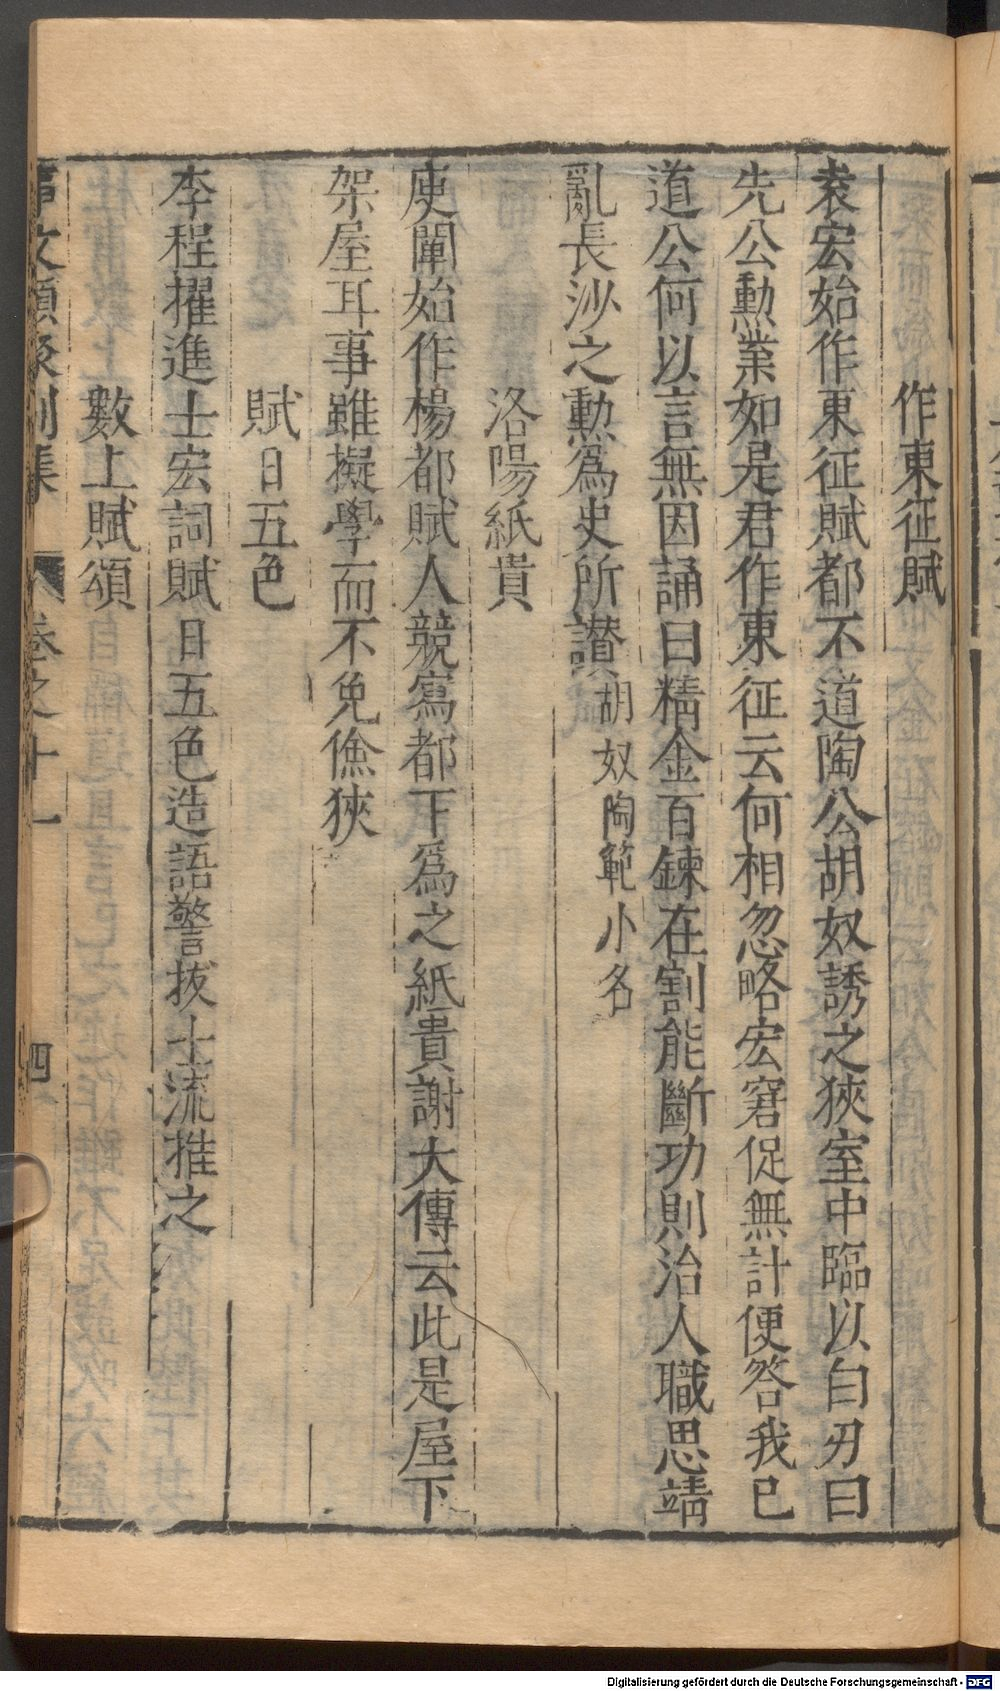 作東征賦
袁宏始作東征賦都不道陶公胡奴誘之狹室中臨以白刃曰
先公勳業如是君作東征云何相忽略宏窘促無計便答我已
道公何以言無因誦曰精金百鍊在割能斷功則治人職思靖
亂長沙之勳爲史所讃胡奴陶範小名
洛陽紙貴
庾闡始作楊都賦人競寫都下爲之紙貴謝大傳云此是屋下
架屋耳事雖擬學而不免儉狹
賦日五色
李程擢進士宏詞賦日五色造語警拔士流推之
數上賦頌
事文類聚別集 卷之十一 四
Digitalisierung gefördert durch die Deutsche Forschungsgemeinschaft - DFG